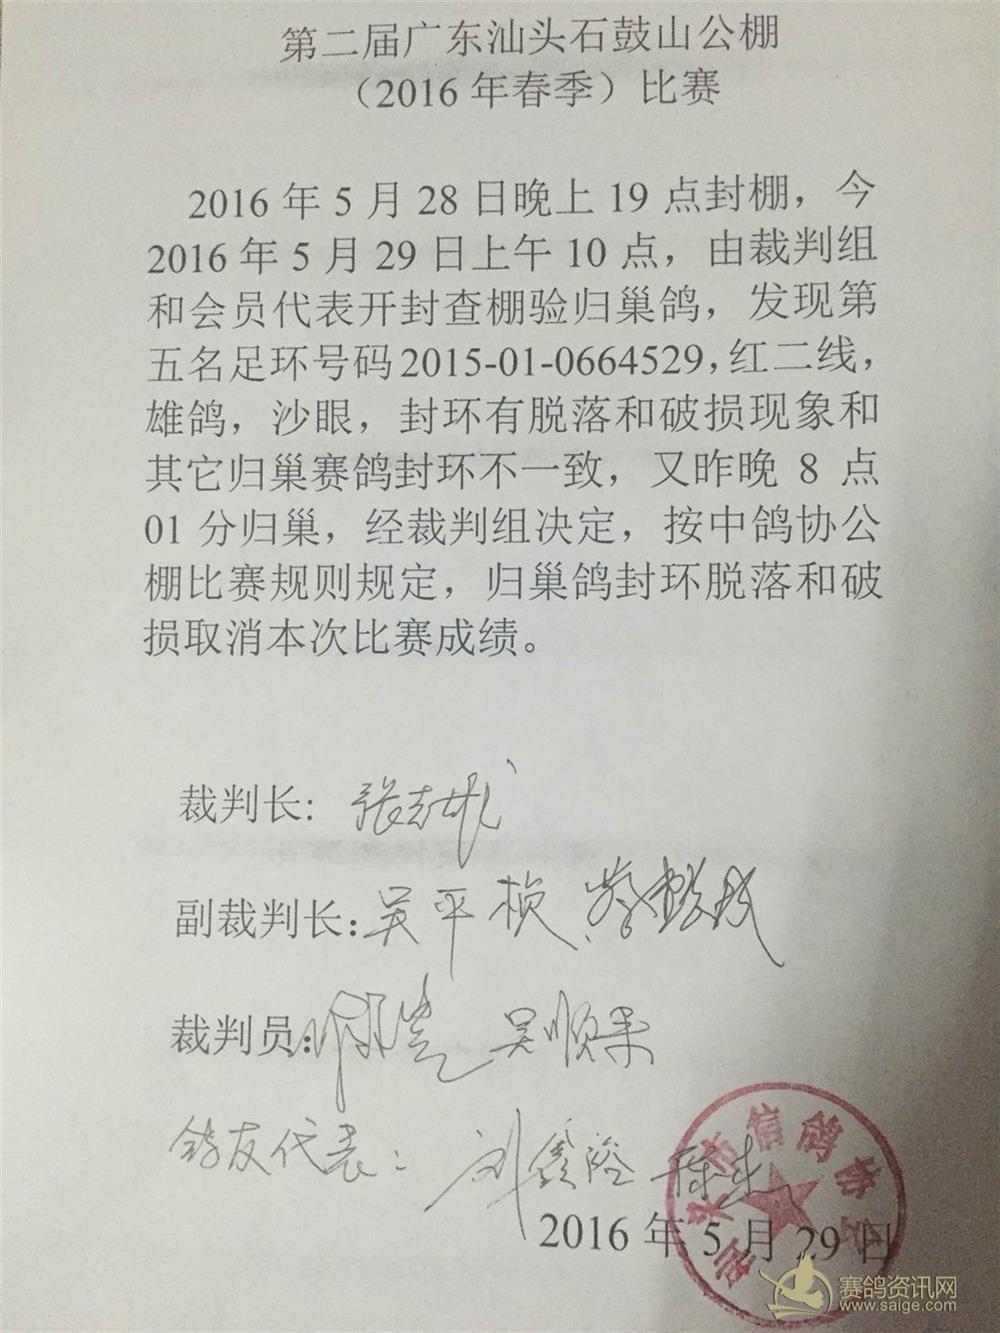 第二届广东汕头石鼓山公棚
（2016年春季）比赛
2016年5月28日晚上19点封棚，今
2016年5月29日上午10点，由裁判组
和会员代表开封查棚验归巢鸽，发现第
五名足环号码2015-01-0664529，红二线，
雄鸽，沙眼，封环有脱落和破损现象和
其它归巢赛鸽封环不一致，又昨晚8点
01分归巢，经裁判组决定，按中鸽协公
棚比赛规则规定，归巢鸽封环脱落和破
损取消本次比赛成绩。
裁判长: 张志彬
副裁判长: 吴平桢
裁判员: 吴顺
鸽友代表: 刘鑫
汕头市信鸽协会
2016年5月29日
赛鸽资讯网
www.saige.com